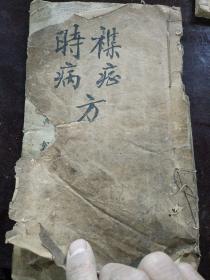 襍症
時病
方